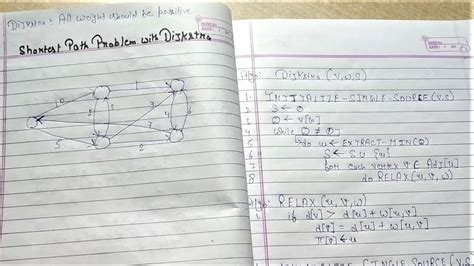 Dijkstra: All weight should be positive
Shortest Path Problem with Dijkstra
10
1
2
3
9
4
6
7
5
2
Algo: Dijkstra (V,W,S)
1. INITIALIZE-SINGLE-SOURCE (V,S)
2 S ← ∅
3 Q ← V[G]
4 while Q ≠ ∅
5 do u ← EXTRACT-MIN(Q)
6 S ← S ∪ {u}
7 for each vertex v ∈ Adj[u]
8 do RELAX (u,v,w)
Algo: RELAX (u,v,w)
1. if d[v] > d[u] + w[u,v]
d[v] = d[u] + w[u,v]
π[v] ← u
SINGLE SOURCE (V,S)